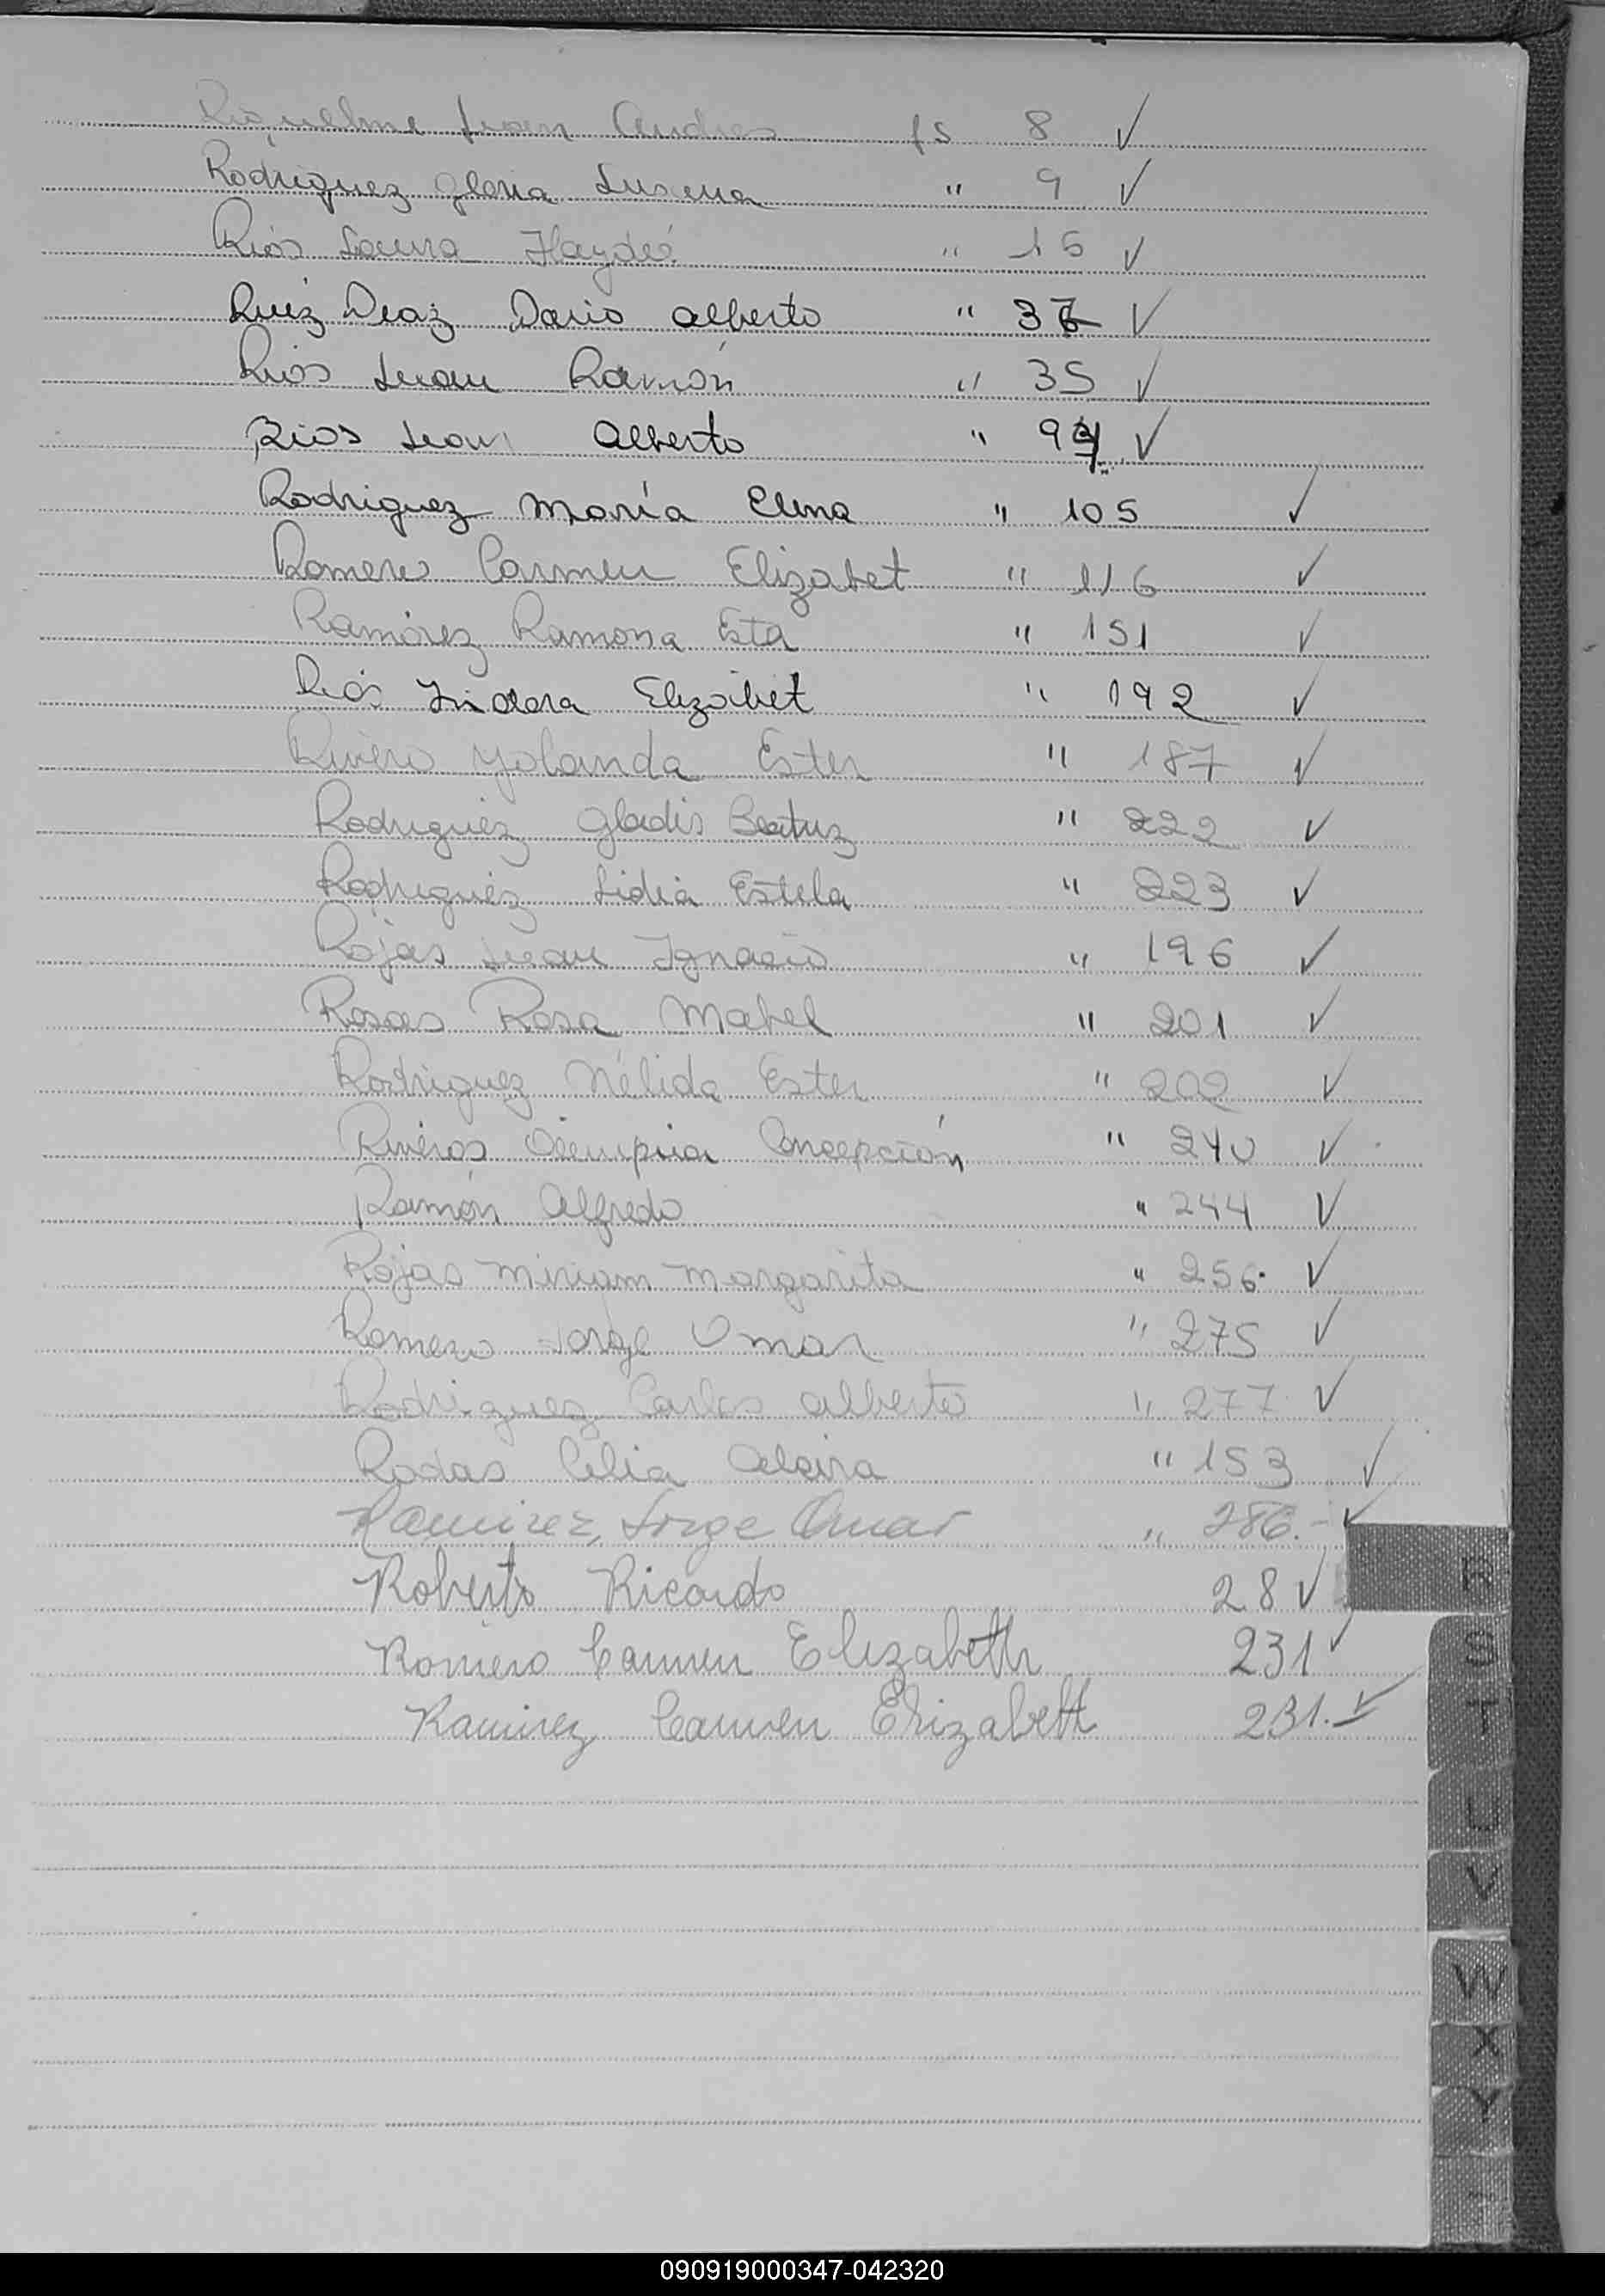 Riquelme Juan Andres fs 8 ✓
Rodriguez Gloria Susana " 9 ✓
Riós Laura Haydeé " 15 ✓
Ruiz Diaz Dario Alberto " ✓
Riós Juan Ramón " 35 ✓
Rios Juan Alberto " ✓
Rodriguez María Elena " 105 ✓
Romero Carmen Elizabet " 116 ✓
Ramírez Ramona Esta " 151 ✓
Riós Elizabet " 192 ✓
Rivero Yolanda Ester " 187 ✓
Rodriguez Gladis Beatriz " 222 ✓
Rodriguez Lidia Estela " 223 ✓
Rojas Juan Ignacio " 196 ✓
Rosas Rosa Mabel " 201 ✓
Rodriguez Nélida Ester " 202 ✓
Riveros Olimpia Concepción " 240 ✓
Ramón Alfredo " 244 ✓
Rojas Miriam Margarita " 256 ✓
Romero Jorge Omar " 275 ✓
Rodriguez Carlos Alberto " 277 ✓
Rodas Celia Alcira " 153 ✓
Ramirez, Jorge Omar " 286.- ✓
Roberto Ricardo 28 ✓
Romero Carmen Elizabeth 231 ✓
Ramirez Carmen Elizabett 231. ✓
R
S
T
U
V
W
X
Y
090919000347-042320